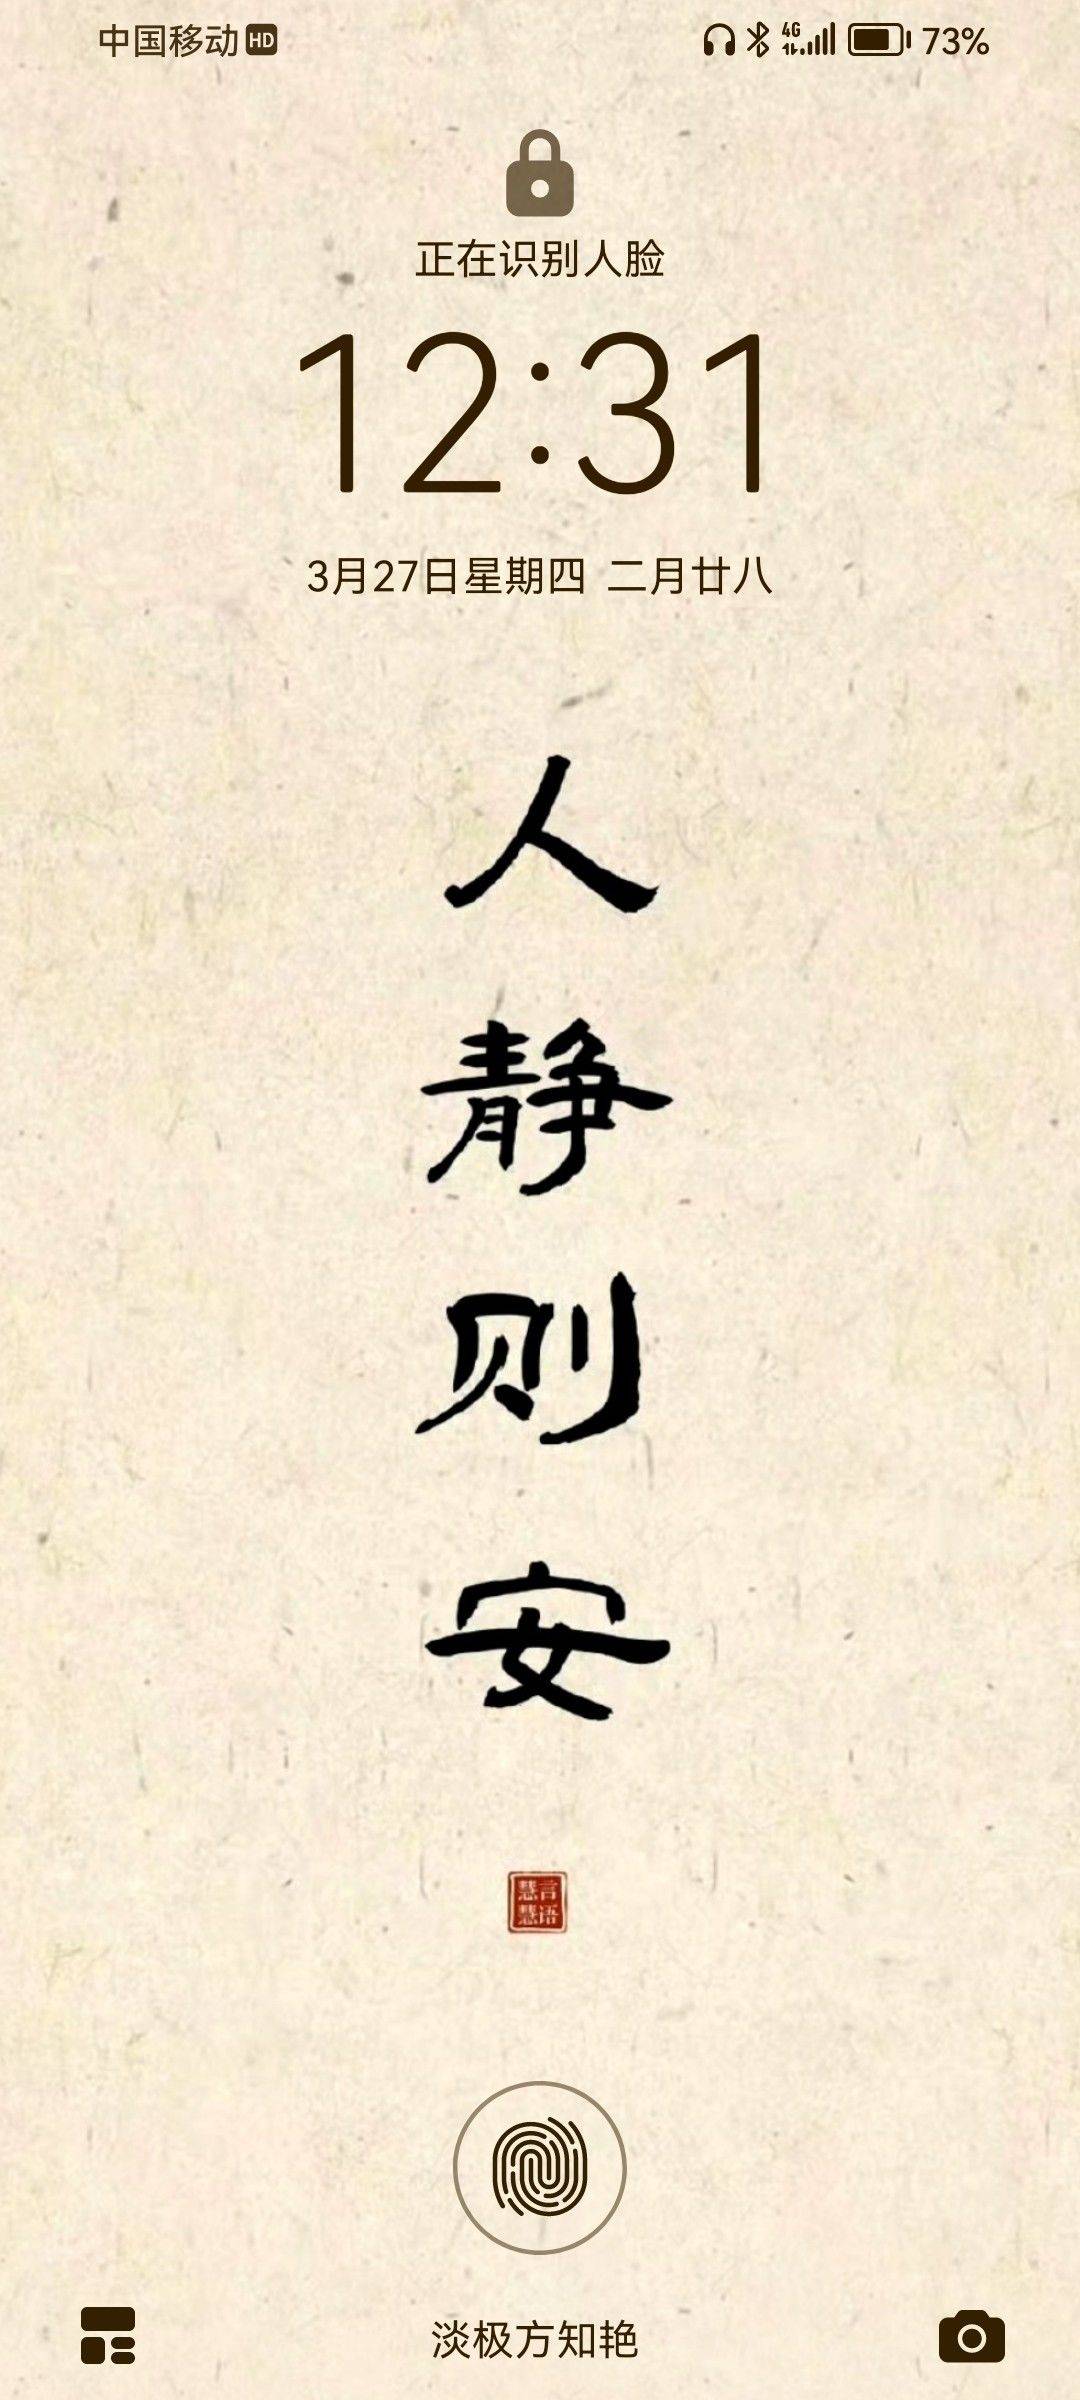 中国移动 HD 4G 73%
正在识别人脸
12:31
3月27日星期四 二月廿八
人
静
则
安
慧言
慧语
淡极方知艳